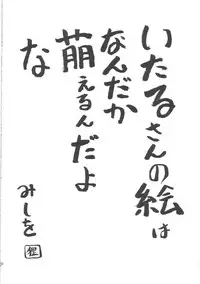 いたるさんの絵は
なんだか
萌えるんだよ
な
みしを